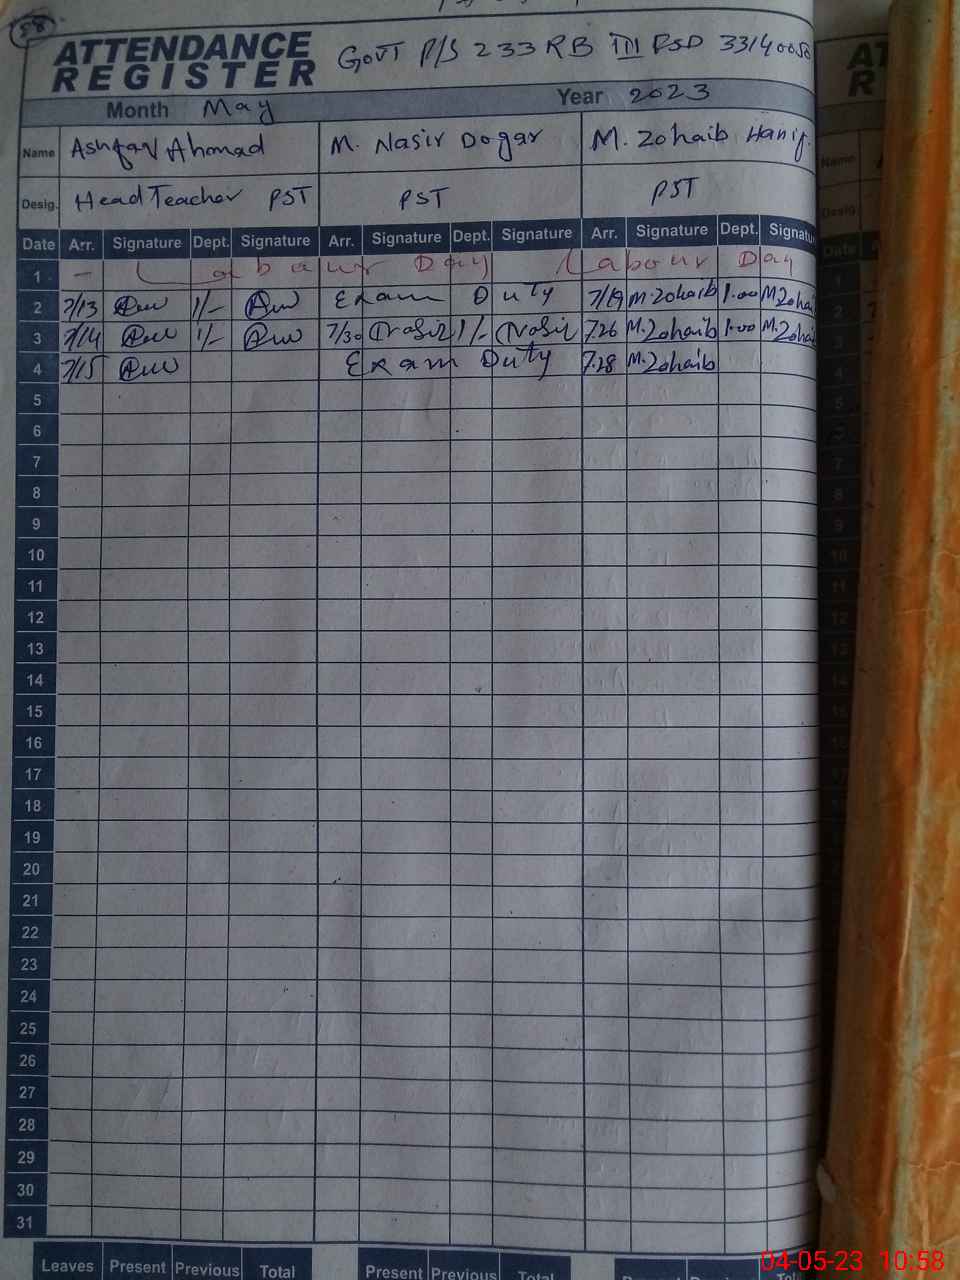 58
ATTENDANCE REGISTER
GOVT P/S 233 RB III FSD 33140050
Month May Year 2023
Name Ashfaq Ahmad M. Nasir Dogar M. Zohaib Hanif
Desig. Head Teacher PST PST PST
Date Arr. Signature Dept. Signature Arr. Signature Dept. Signature Arr. Signature Dept. Signatu
1 - Labour Day Labour Day
2 7/13 1/- Exam Duty 7/19 M.Zohaib 1.00 M.Zohai
3 7/14 1/- 7/30 Nasir 1/- Nasir 7.26 M.Zohaib 1.00 M.Zohai
4 7/15 Exam Duty 7.28 M.Zohaib
5
6
7
8
9
10
11
12
13
14
15
16
17
18
19
20
21
22
23
24
25
26
27
28
29
30
31
Leaves Present Previous Total Present Previous Total
04-05-23 10:58